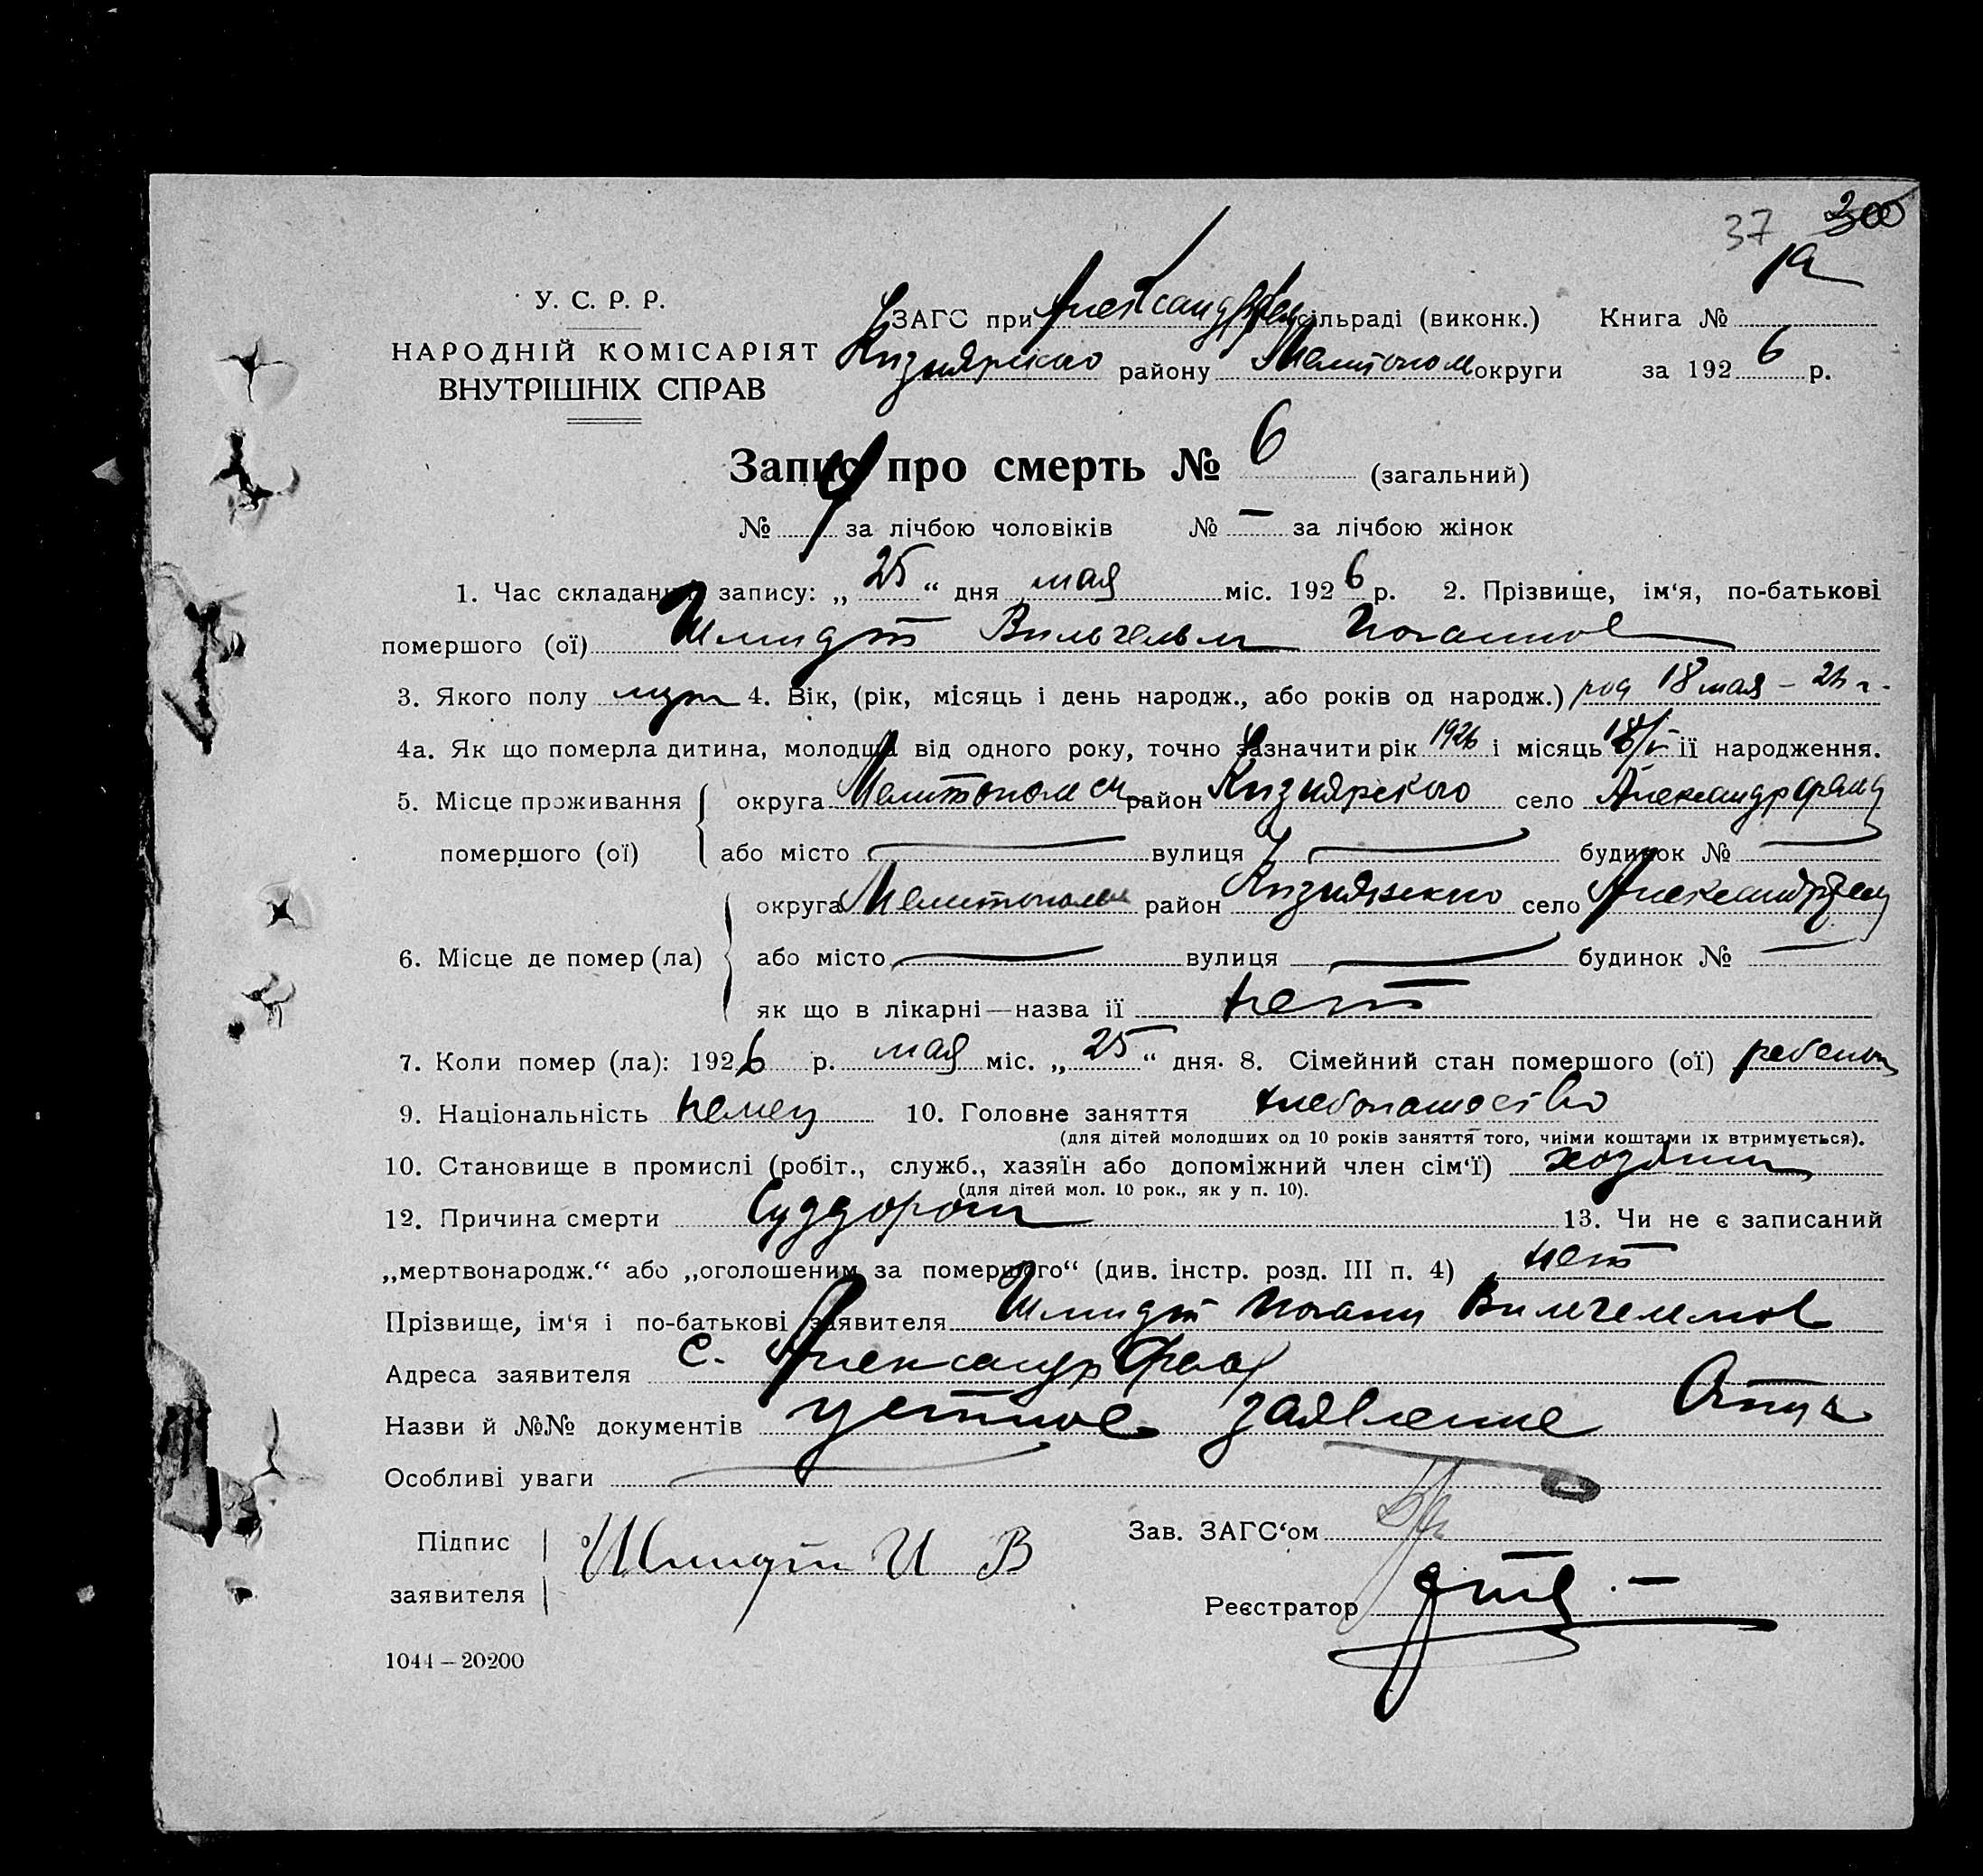 37 300
У. С. Р. Р.
ЗАГС при Александрфельд сільраді (виконк.) Книга №
НАРОДНІЙ КОМІСАРІЯТ
ВНУТРІШНІХ СПРАВ
Кизиярского району Мелитопол округи за 1926 р.
Запис про смерть № 6 (загальний)
№ за лічбою чоловіків № – за лічбою жінок
1. Час складання запису: „25“ дня мая міс. 1926 р. 2. Прізвище, ім‘я, по-батькові
помершого (ої) Шмидт Вильгельм Иоганнов
3. Якого полу муж 4. Вік, (рік, місяць і день народж., або років од народж.) род 18 мая – 26 г.
4а. Як що померла дитина, молодша від одного року, точно зазначити рік 1926 і місяць 18/V її народження.
5. Місце проживання округа Мелитополь район Кизиярского село Александрфельд
помершого (ої) або місто — вулиця — будинок № —
округа Мелитополь район Кизиярского село Александрфельд
6. Місце де помер (ла) або місто — вулиця — будинок № —
як що в лікарні—назва її нет
7. Коли помер (ла): 1926 р. мая міс. „25“ дня. 8. Сімейний стан помершого (ої) ребенок
9. Національність немец 10. Головне заняття хлебопашество
(для дітей молодших од 10 років заняття того, чиїми коштами їх втримується).
10. Становище в промислі (робіт., служб., хазяїн або допоміжний член сім‘ї) хозяин
(для дітей мол. 10 рок., як у п. 10).
12. Причина смерти Суддороги 13. Чи не є записаний
„мертвонародж.“ або „оголошеним за помершого“ (див. інстр. розд. III п. 4) нет
Прізвище, ім‘я і по-батькові заявителя Шмидт Иоганн Вильгельмов
Адреса заявителя с. Александрфельд
Назви й №№ документів устное заявление Отца
Особливі уваги
Підпис
заявителя
Шмидт И В
Зав. ЗАГС‘ом
Реєстратор
1044 – 20200